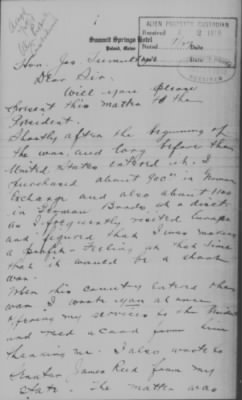 Summit Springs Hotel
Poland, Maine
ALIEN PROPERTY CUSTODIAN
Hon. Jos. Tumulty
Dear Sir.
Will you please
present this matter to the
President.
Shortly after the beginning of
the war, and long before the
United States entered it, I
purchased about 900 in German
Exchange and also about 1100
in German Bonds, as a
as I frequently visited Europe
and figured that I was making
a profit - feeling at that time
that it would be a short
war.
When this country entered the
war I wrote you at once
offering my services to the
and recd a card from him
thanking me. I also wrote to
Senator James Reed from my
state. The matter was